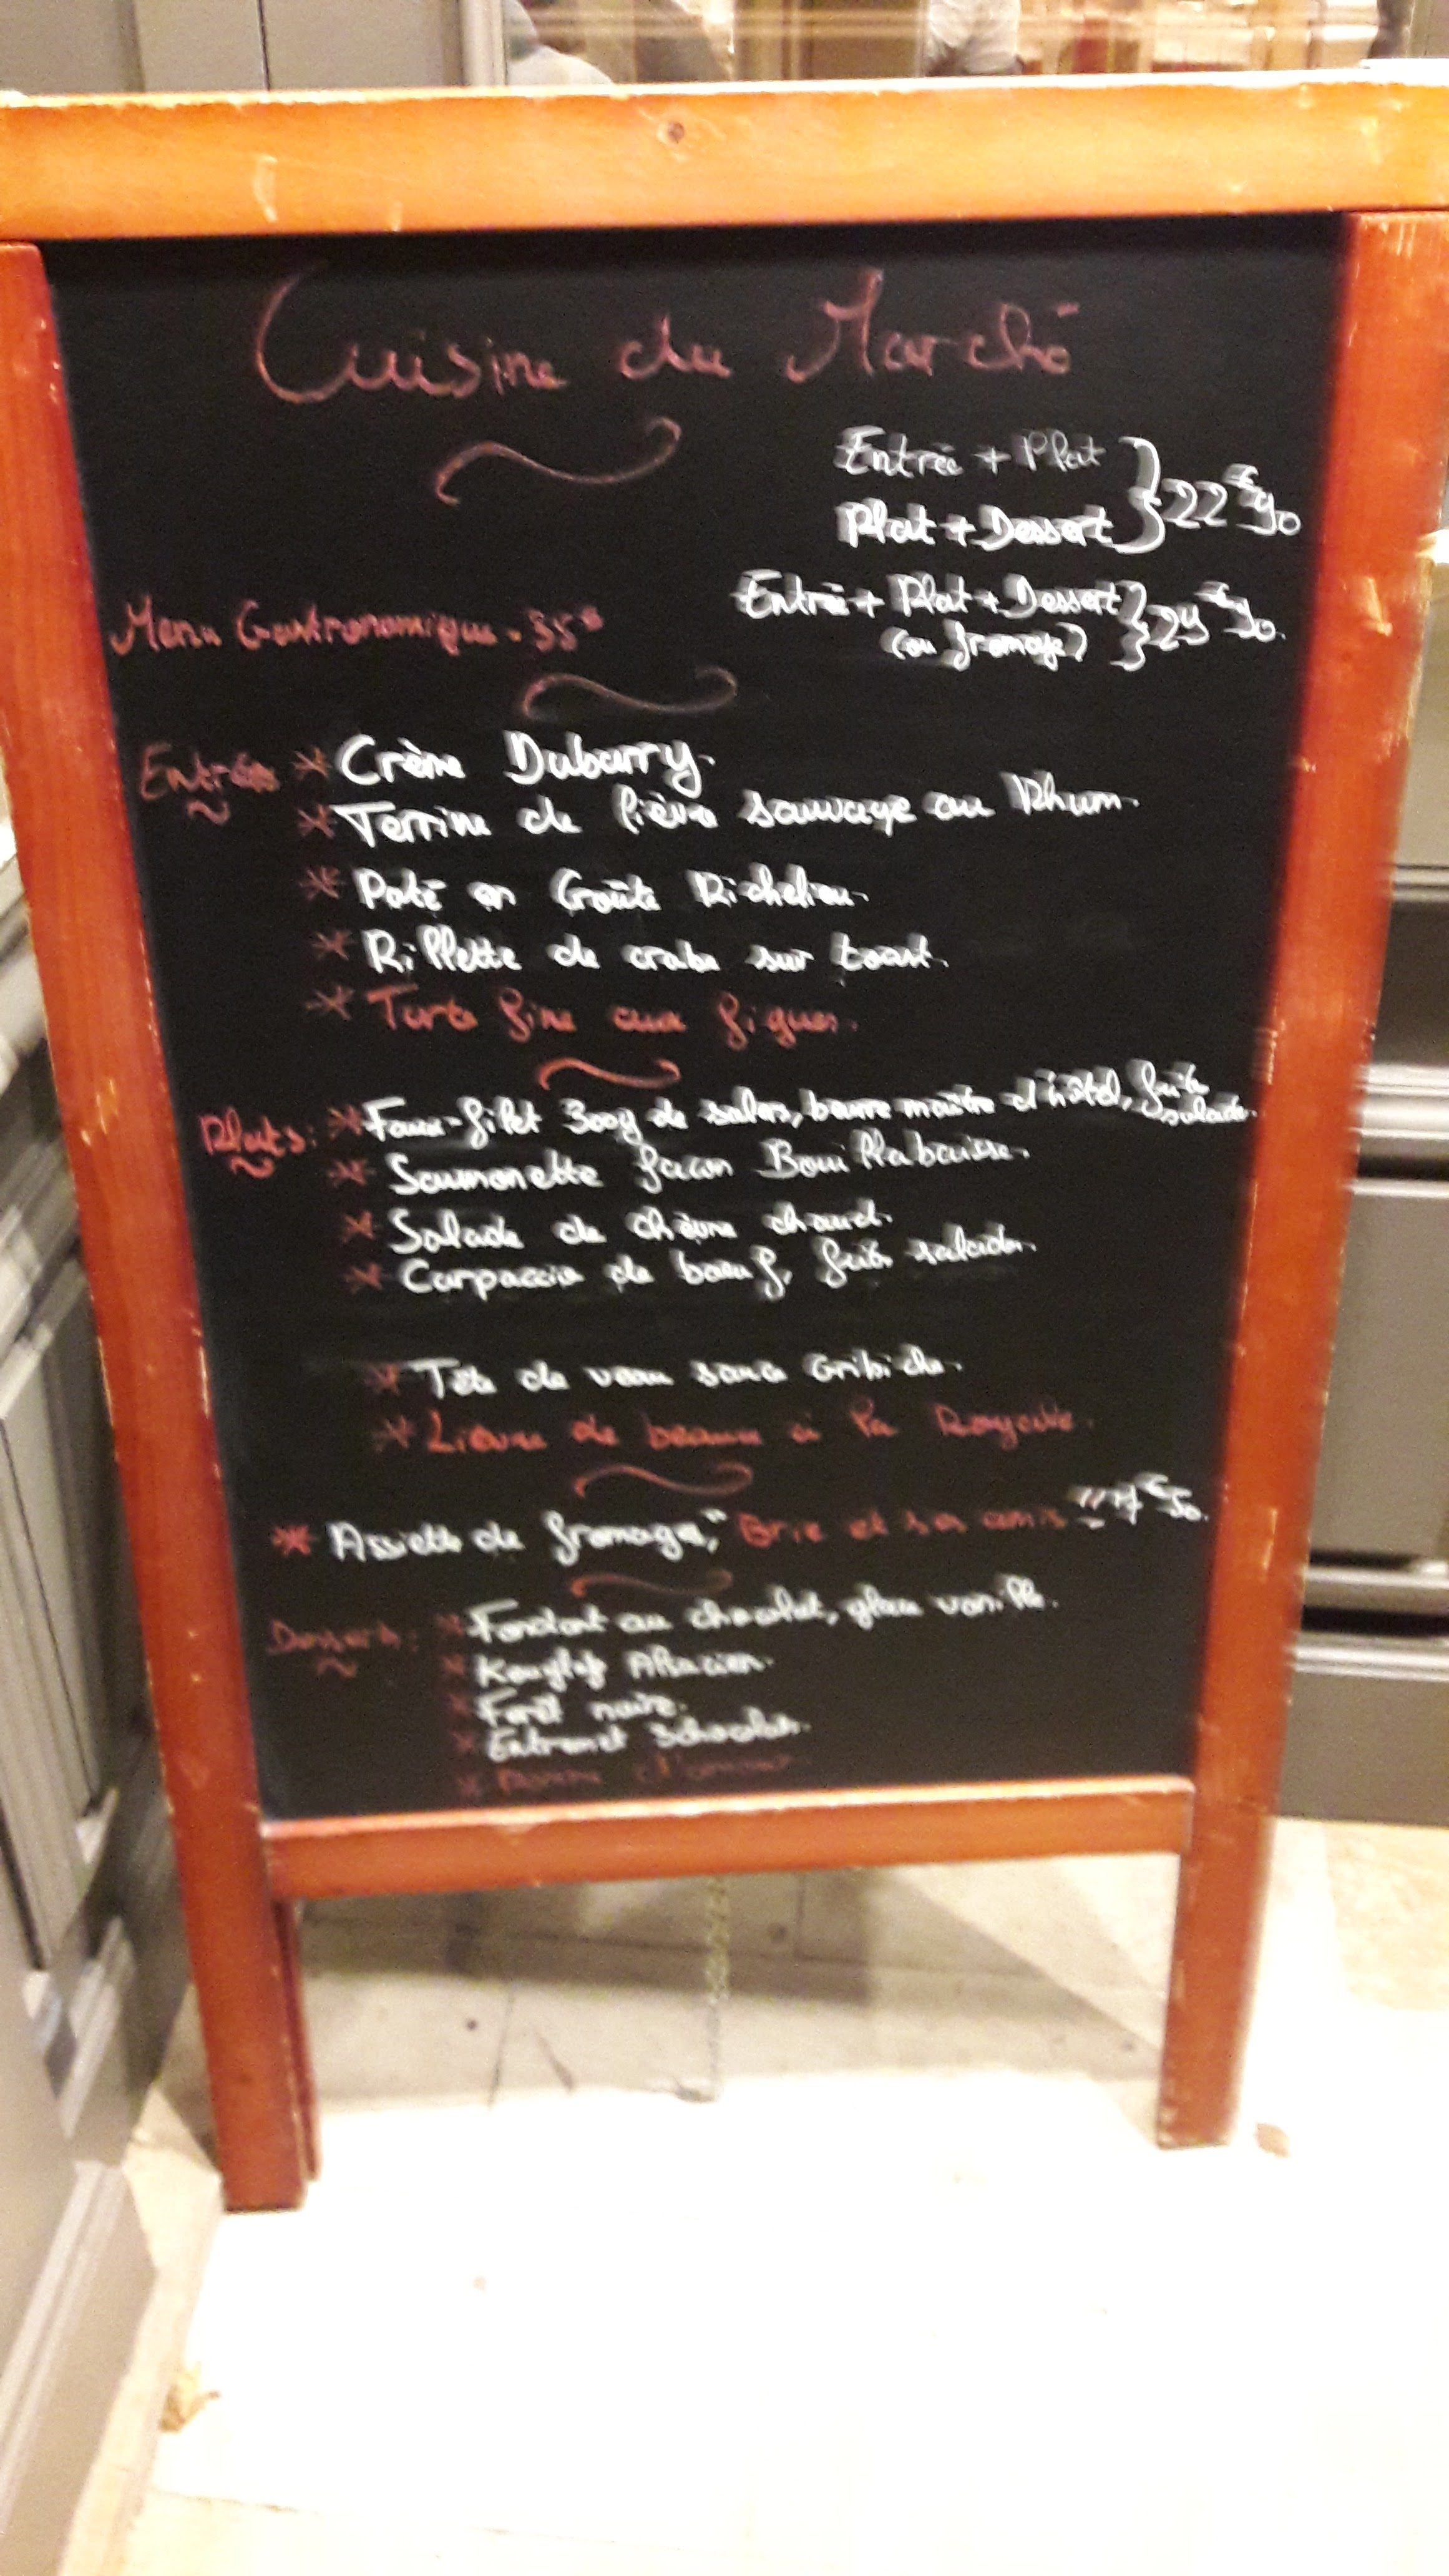 Cuisine du Marché
Entrée + Plat
Plat + Dessert } 22€90
Entrée + Plat + Dessert
(ou fromage) } 29€90.
Menu Gastronomique - 35€
Entrées * Crème Dubarry.
* Terrine de lièvre sauvage au Rhum.
* Paté en Croûte Richelieu.
* Rillette de crabe sur toast.
* Tarte fine aux figues.
Plats: * Faux-filet 300g de salers, beurre maître d'hôtel, frite salade.
* Saumonette façon Bouillabaisse.
* Salade de chèvre chaud.
* Carpaccio de bœuf, frite salade.
* Tête de veau sauce Gribiche.
* Lièvre de beauce à la Royale.
* Assiette de fromage, "Brie et ses amis" = 7€50.
Desserts: * Fondant au chocolat, glace vanille.
* Kouglof Alsacien.
* Forêt noire.
* Entremet 3 chocolats.